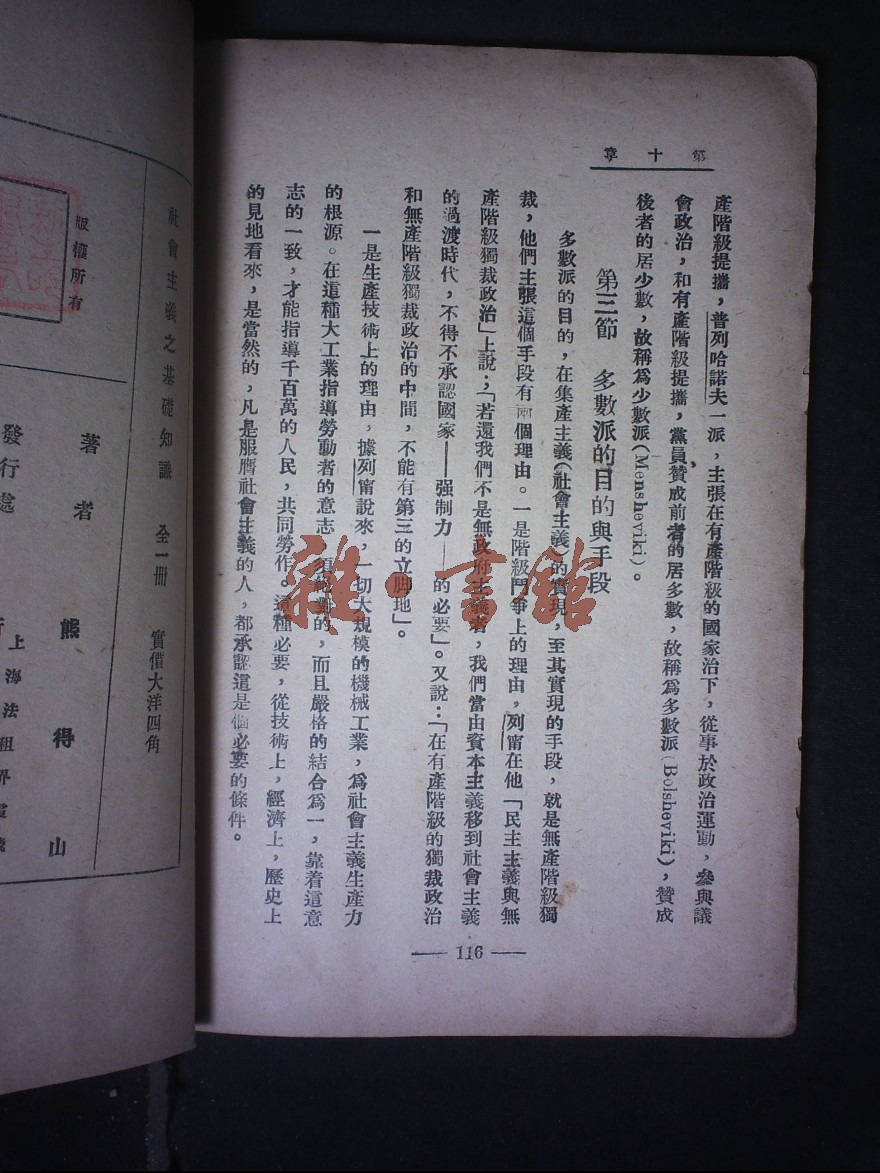 第十章
產階級提攜，普列哈諾夫一派，主張在有產階級的國家治下，從事於政治運動，參與議
會政治，和有產階級提攜，黨員贊成前者的居多數，故稱爲多數派(Bolsheviki)，贊成
後者的居少數，故稱爲少數派(Mensheviki)。
第三節 多數派的目的與手段
多數派的目的，在集產主義(社會主義)的實現，至其實現的手段，就是無產階級獨
裁，他們主張這個手段有兩個理由。一是階級鬥爭上的理由，列甯在他「民主主義與無
產階級獨裁政治」上說；「若還我們不是無政府主義者，我們當由資本主義移到社會主義
的過渡時代，不得不承認國家——强制力——的必要」。又說：「在有產階級的獨裁政治
和無產階級獨裁政治的中間，不能有第三的立脚地」。
一是生產技術上的理由，據列甯說來，一切大規模的機械工業，爲社會主義生產力
的根源。在這種大工業指導勞動者的意志，須絕對的，而且嚴格的結合爲一，靠着這意
志的一致，才能指導千百萬的人民，共同勞作。這種必要，從技術上，經濟上，歷史上
的見地看來，是當然的，凡是服膺社會主義的人，都承認這是個必要的條件。
—— 116 ——
雜·書館
版權所有
社會主義之基礎知識 全一冊 實價大洋四角
著者 熊得山
發行處
上海法租界